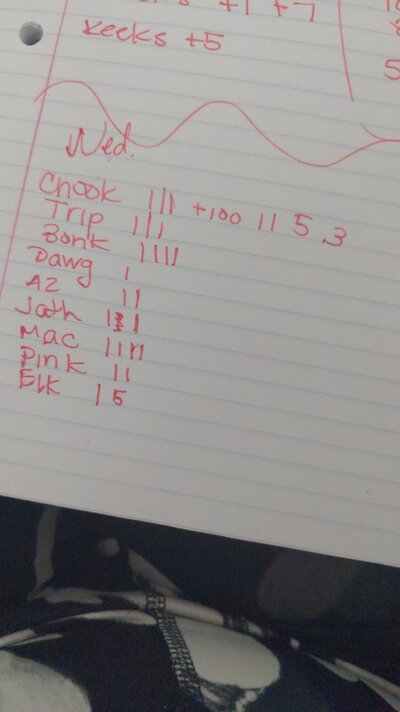 +1 +7
Keeks +5
5
Wed.
Chook ||| +100 11 5 3
Trip |||
Bonk ||||
Dawg |
AZ ||
Jath |||
Mac ||||
Pink ||
Elk | 5